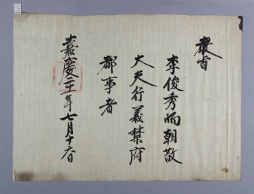 敎旨
李俊秀爲朝散
大夫行義禁府
都事者
嘉慶二十一年七月十六日